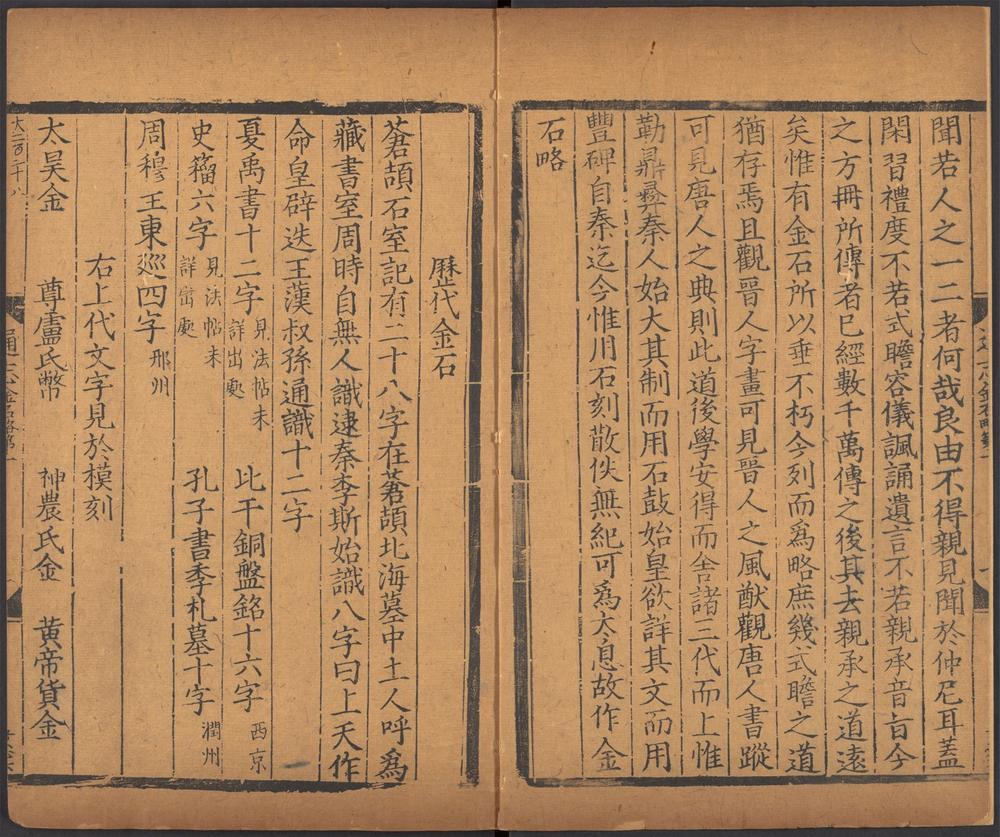 聞若人之一二者何哉良由不得親見聞於仲尼耳蓋
閑習禮度不若式瞻容儀諷誦遺言不若親承音旨今
之方冊所傳者已經數千萬傳之後其去親承之道遠
矣惟有金石所以垂不朽今列而爲略庶幾式瞻之道
猶存焉且觀晉人字畫可見晉人之風猷觀唐人書蹤
可見唐人之典則此道後學安得而舍諸三代而上惟
勒鼎彝秦人始大其制而用石鼓始皇欲詳其文而用
豐碑自秦迄今惟用石刻散佚無紀可爲太息故作金
石略
歷代金石
蒼頡石室記有二十八字在蒼頡北海墓中土人呼爲
藏書室周時自無人識逮秦李斯始識八字曰上天作
命皇辟迭王漢叔孫通識十二字
夏禹書十二字 見法帖未詳出處 比干銅盤銘十六字 西京
史籀六字 見法帖未詳出處 孔子書季札墓十字 潤州
周穆王東巡四字 邢州
右上代文字見於模刻
太昊金 尊盧氏幣 神農氏金 黃帝貨金
大二百二十八
通志金石略第一